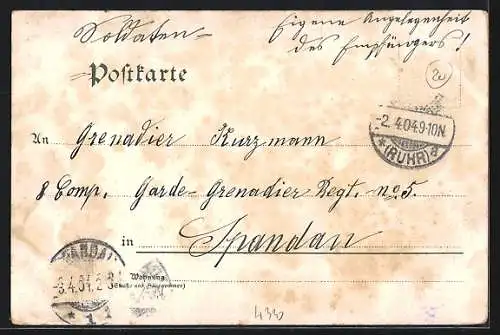 Soldaten-
Eigene Angelegenheit
des Empfängers!
Postkarte
-2.4.04.9-10N.
*(RUHR)a
An Grenadier Kurzmann
8 Comp. Garde-Grenadier Regt. no 5.
in Spandau
SPANDAU
* 1
Wohnung
4330